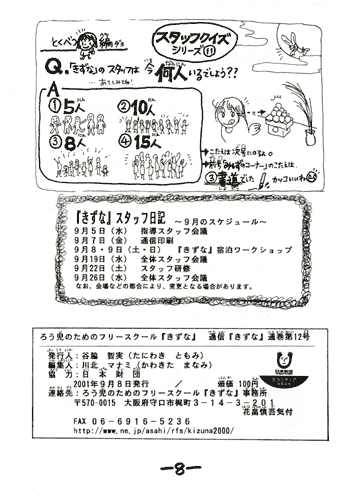 とくべつ 編 ダヨ
スタッフクイズ
シリーズ⑪
Q.「きずな」のスタッフは 今 何人いるでしょう??
…あててみてね!
A
① 5人 ② 10人
③ 8人 ④ 15人
→こたえは次号にのるヨ
③書道でした
『きずな』スタッフ日記 ～9月のスケジュール～
9月5日(水) 指導スタッフ会議
9月7日(金) 通信印刷
9月8・9日(土・日) 『きずな』宿泊ワークショップ
9月19日(水) 全体スタッフ会議
9月22日(土) スタッフ研修
9月26日(水) 全体スタッフ会議
なお、会場などの都合により、変更となる場合があります。
ろう児のためのフリースクール『きずな』 通信『きずな』通巻第12号
発行人:谷脇 智実(たにわき ともみ)
編集人:川北 マナミ(かわきた まなみ)
協力:日本財団
2001年9月8日発行 / 頒価 100円
連絡先:ろう児のためのフリースクール『きずな』事務所
〒570-0015 大阪府守口市梶町3-14-3-201
花畠慎吾気付
FAX 06-6916-5236
http://www.ne.jp/asahi/rfs/kizuna2000/
-8-